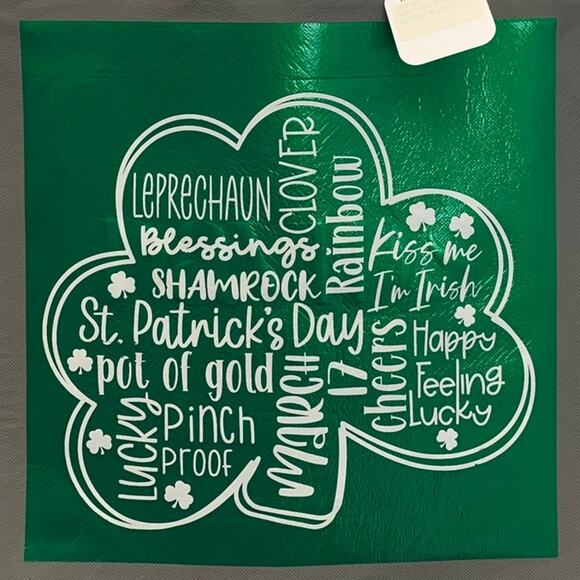 LEPRECHAUN
CLOVER
Rainbow
Blessings
Kiss me
I'm Irish
SHAMROCK
St. Patrick's Day
cheers
Happy
pot of gold
MARCH
17
Feeling
Lucky
LUCKY
Pinch
PROOF